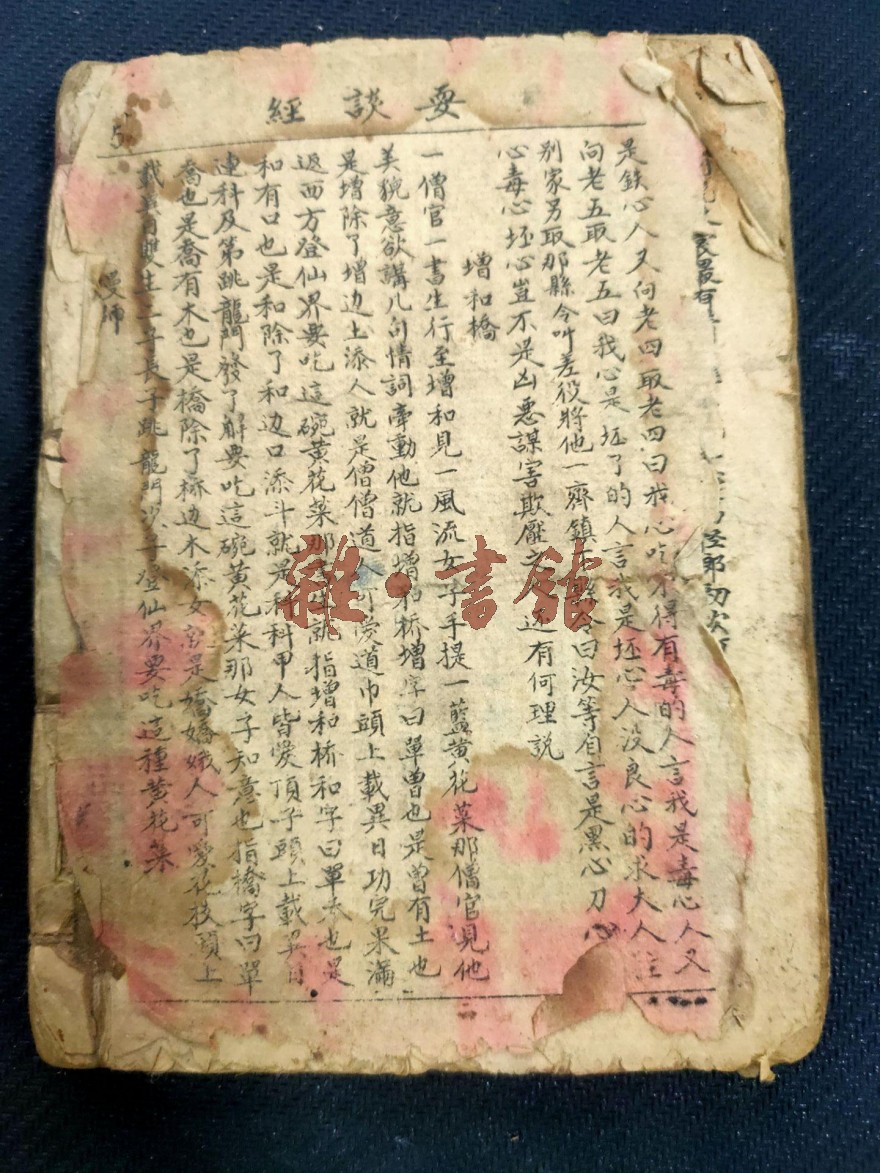 耍談經
是鉄心人又问老四取老四曰我心吃不得有毒的人言我是毒心人又
问老五取老五曰我心是坯了的人言我是坯心人没良心的求大人註
别家另取那縣令叫差役將他一齊鎮下縣令曰汝等自言是黑心刀心
心毒心坯心豈不是凶惡謀害欺壓之人还有何理説
增和橋
一僧官一書生行至增和見一風流女子手提一藍黄花菜那僧官見他
美貌意欲講几句情詞牽動他就指增和桥增字曰單曾也是曾有土也
是增除了增边土添人就是僧僧道人可愛道巾頭上載異日功完果滿
返西方登仙界要吃這碗黄花菜那書生就指增和桥和字曰單禾也是
和有口也是和除了和边口添斗就是科科甲人皆愛頂子頭上載異日
連科及第跳龍門發了解要吃這碗黄花菜那女子知意也指橋字曰單
喬也是喬有木也是橋除了桥边木添女就是嬌嬌娥人可愛花枝頭上
載異日雙生二子長子跳龍門次子登仙界要吃這種黄花菜
二
雜·書館